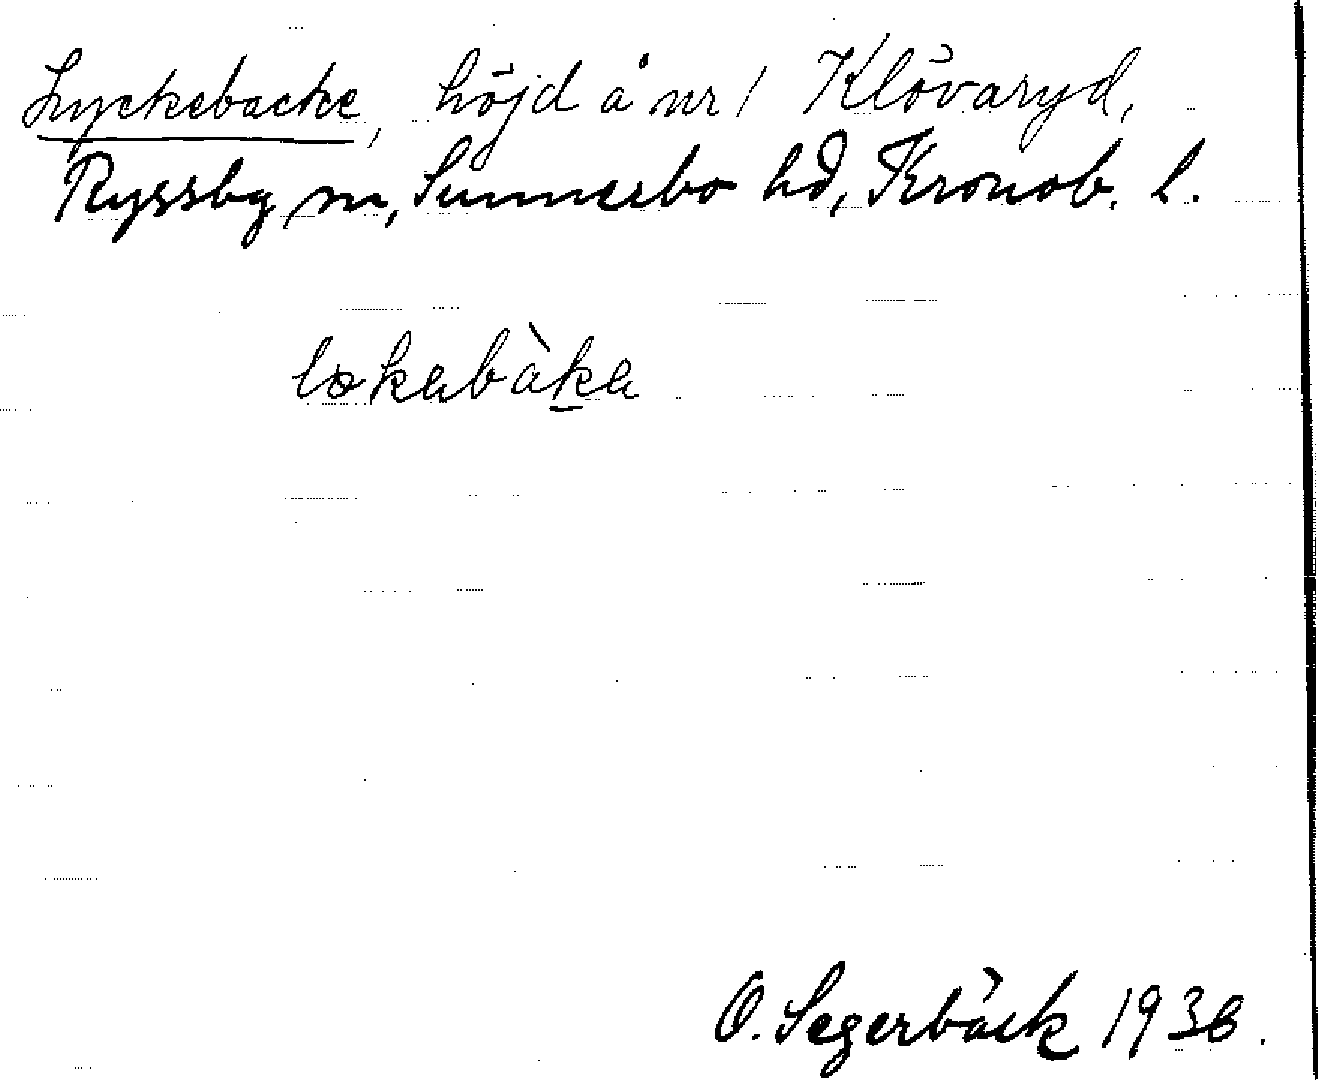 Lyckebacke, höjd å nr 1 Klövaryd,
Ryssby sn, Sunnerbo hd, Kronob. l.
løkabàka
O. Segerbäck 1936.